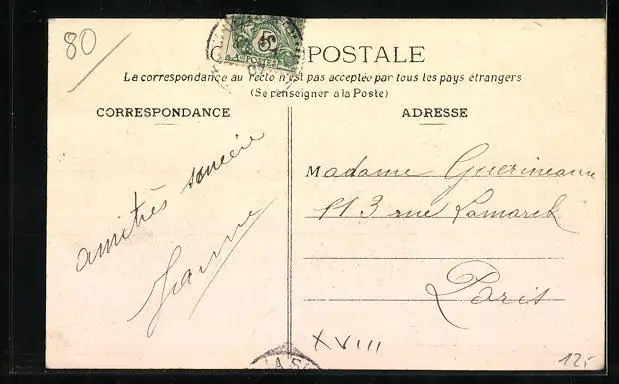 80
5c
POSTES
POSTALE
La correspondance au recto n'est pas acceptée par tous les pays étrangers
(Se renseigner à la Poste)
CORRESPONDANCE
ADRESSE
amitiés
Jeanne
Madame
113 rue Lamarck
Paris
XVIII
12,-